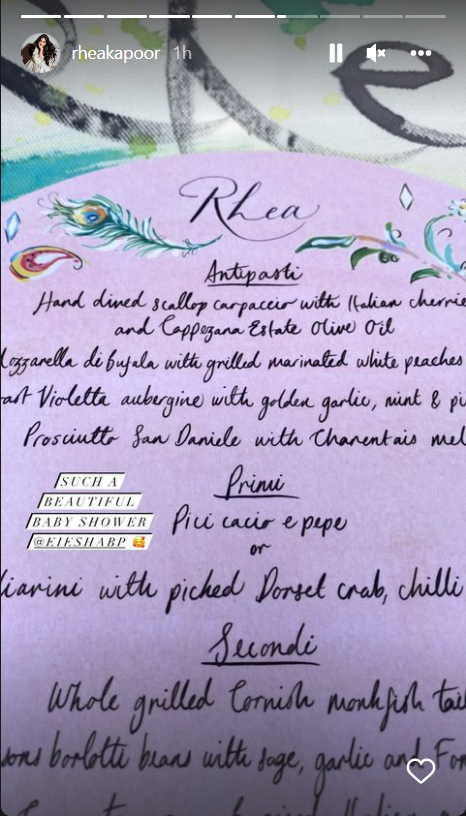 rheakapoor 1h
Rhea
Antipasti
Hand dived scallop carpaccio with Italian cherrie
and Cappezana Estate Olive Oil
ozzarella di bufala with grilled marinated white peaches
ast Violetta aubergine with golden garlic, mint & pi
Prosciutto San Daniele with Charentais mel
SUCH A
BEAUTIFUL
BABY SHOWER
@EIESHABP 🥰
Primi
Pici cacio e pepe
or
liarini with picked Dorset crab, chilli
Secondi
Whole grilled Cornish monkfish tail
sons borlotti beans with sage, garlic and For